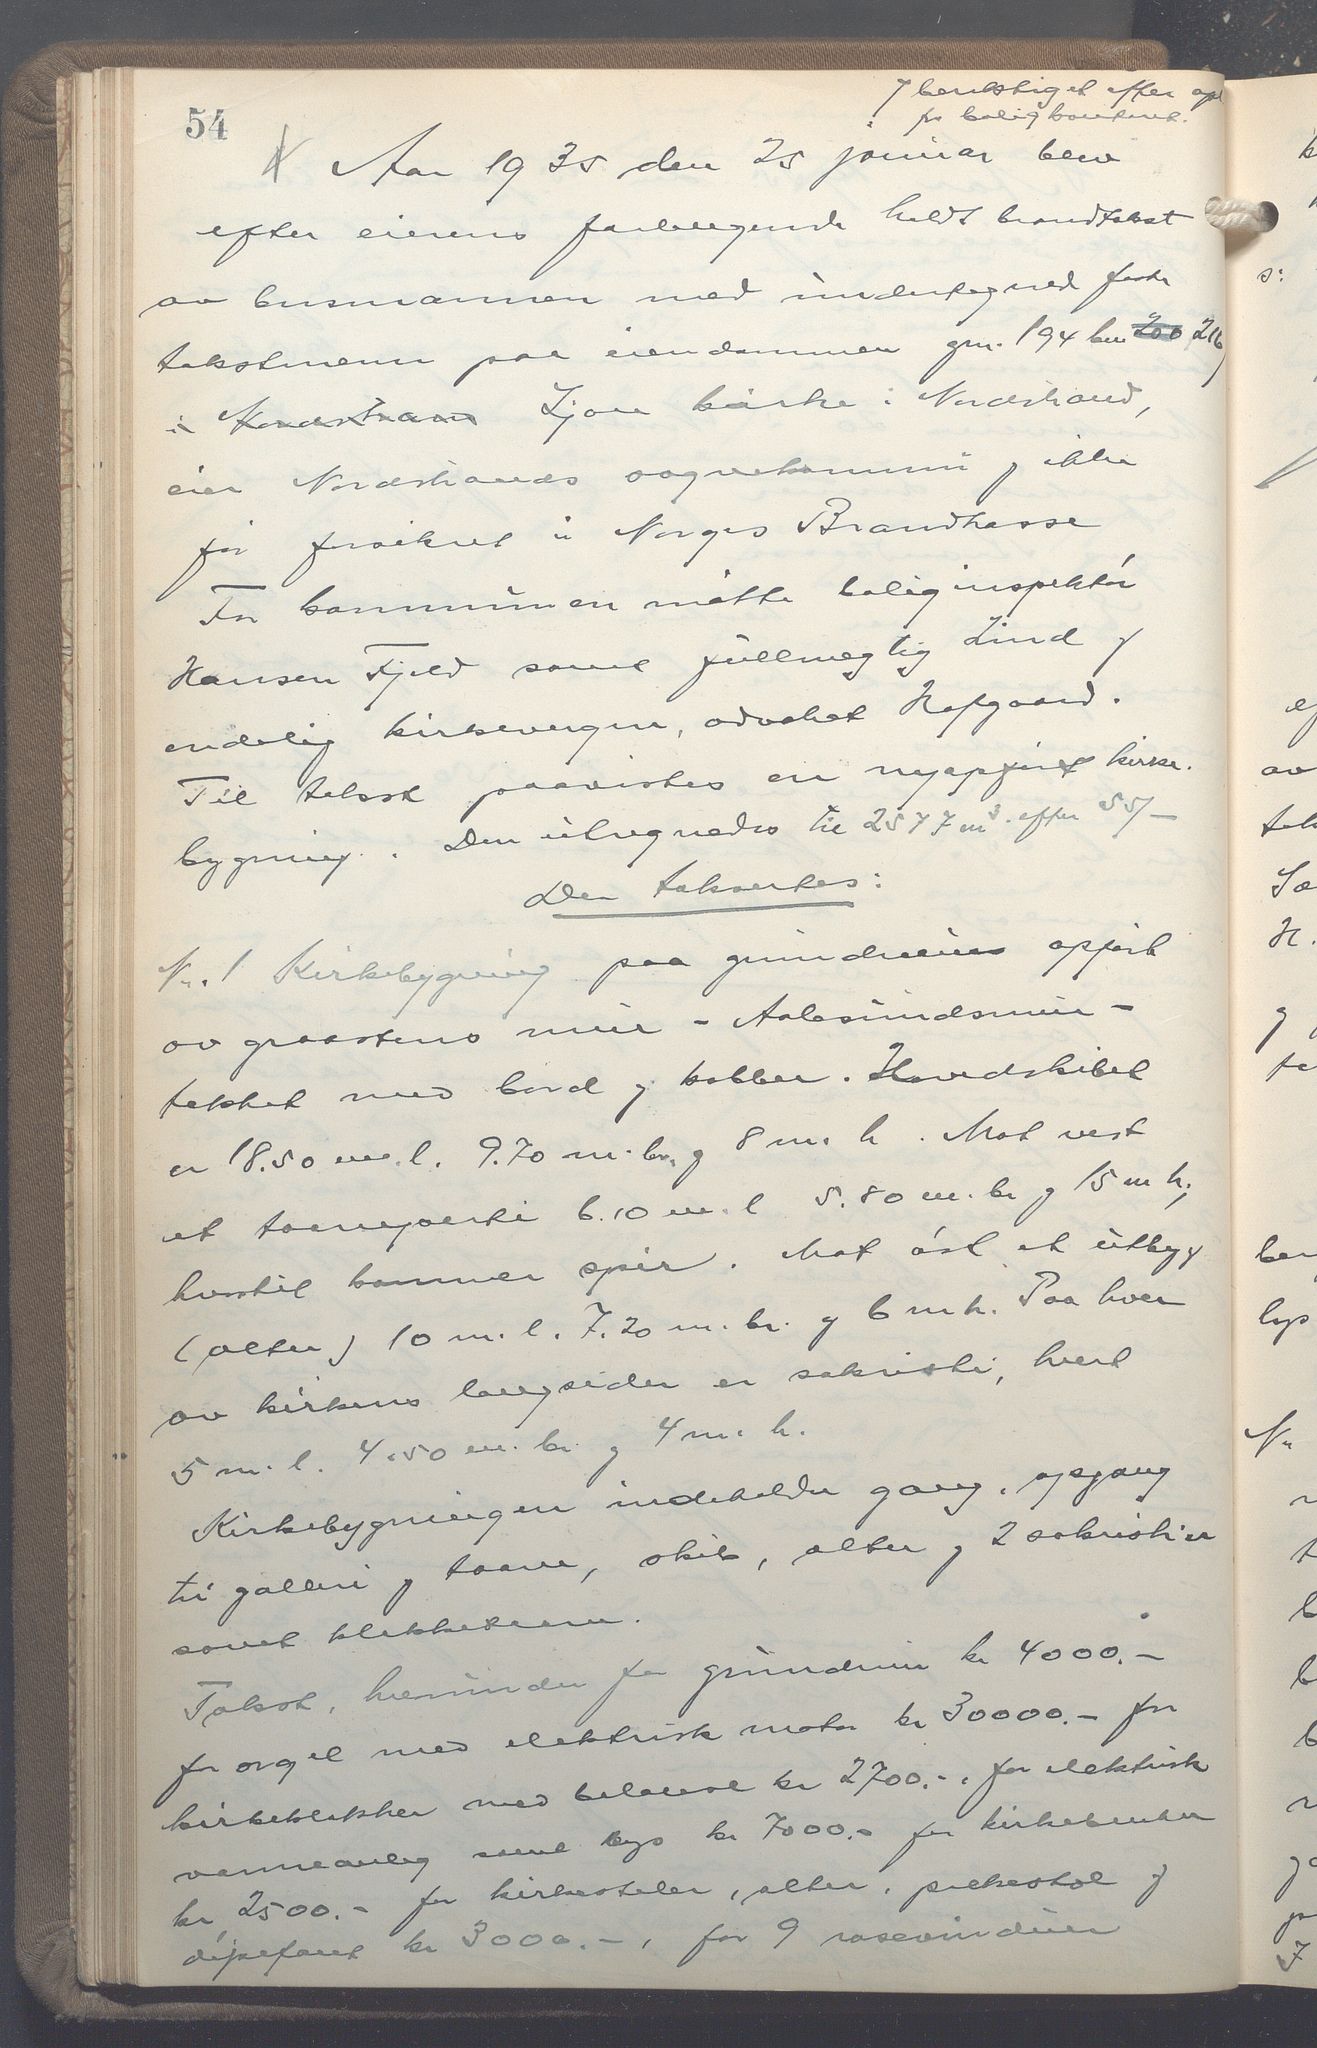 berektiget efter opl
fra boligkontoret.
54
Aar 1935 den 25 januar blev
efter eierens forlangende holdt brandtakst
av lensmannen med undertegned faste
takstmenn paa eiendommen gnr. 194 bnr 200 216
i Nordstrand Ljan kirke i Nordstrand,
eier Nordstrands sognekommune og ikke
før forsikret i Norges Brandkasse
For kommunen møtte boliginspektør
Hansen Fjeld samt fullmegtig Lind og
endelig kirkevergen, advokat Hofgaard.
Til takst paavistes en nyopført kirke-
bygning. Den utregnedes til 2577 m³ efter 55/-
Den takseredes:
Nr. 1 Kirkebygning paa grundmur opført
av graastens mur - Aalesundsmur -
tekket med bord og kobber. Hovedskibet
er 18.50 m. l. 9.70 m. br. og 8 m. h. Mot vest
et taarnparti 6.10 m. l 5.80 m. br og 15 m h,
hvortil kommer spir. Mot øst et utbygg
(alter) 10 m. l. 7.20 m. br. og 6 m h. Paa hver
av kirkens langsider er sakristi, hvert
5 m. l. 4.50 m. br. og 4 m. h.
Kirkebygningen indeholder gang, opgang
til galleri og taarn, skib, alter og 2 sakristier
samt klokketaarn.
Takst, herunder for grundmur kr 4000.-
for orgel med elektrisk motor kr 30000.- for
kirkeklokker med belaral kr 2700.-, for elektrisk
varmeanlæg samt lys kr 7000.- for kirkebenker
kr 2500.- for kirkestoler, alter, prekestol og
døpefont kr 3000.-, for 9 rosevinduer